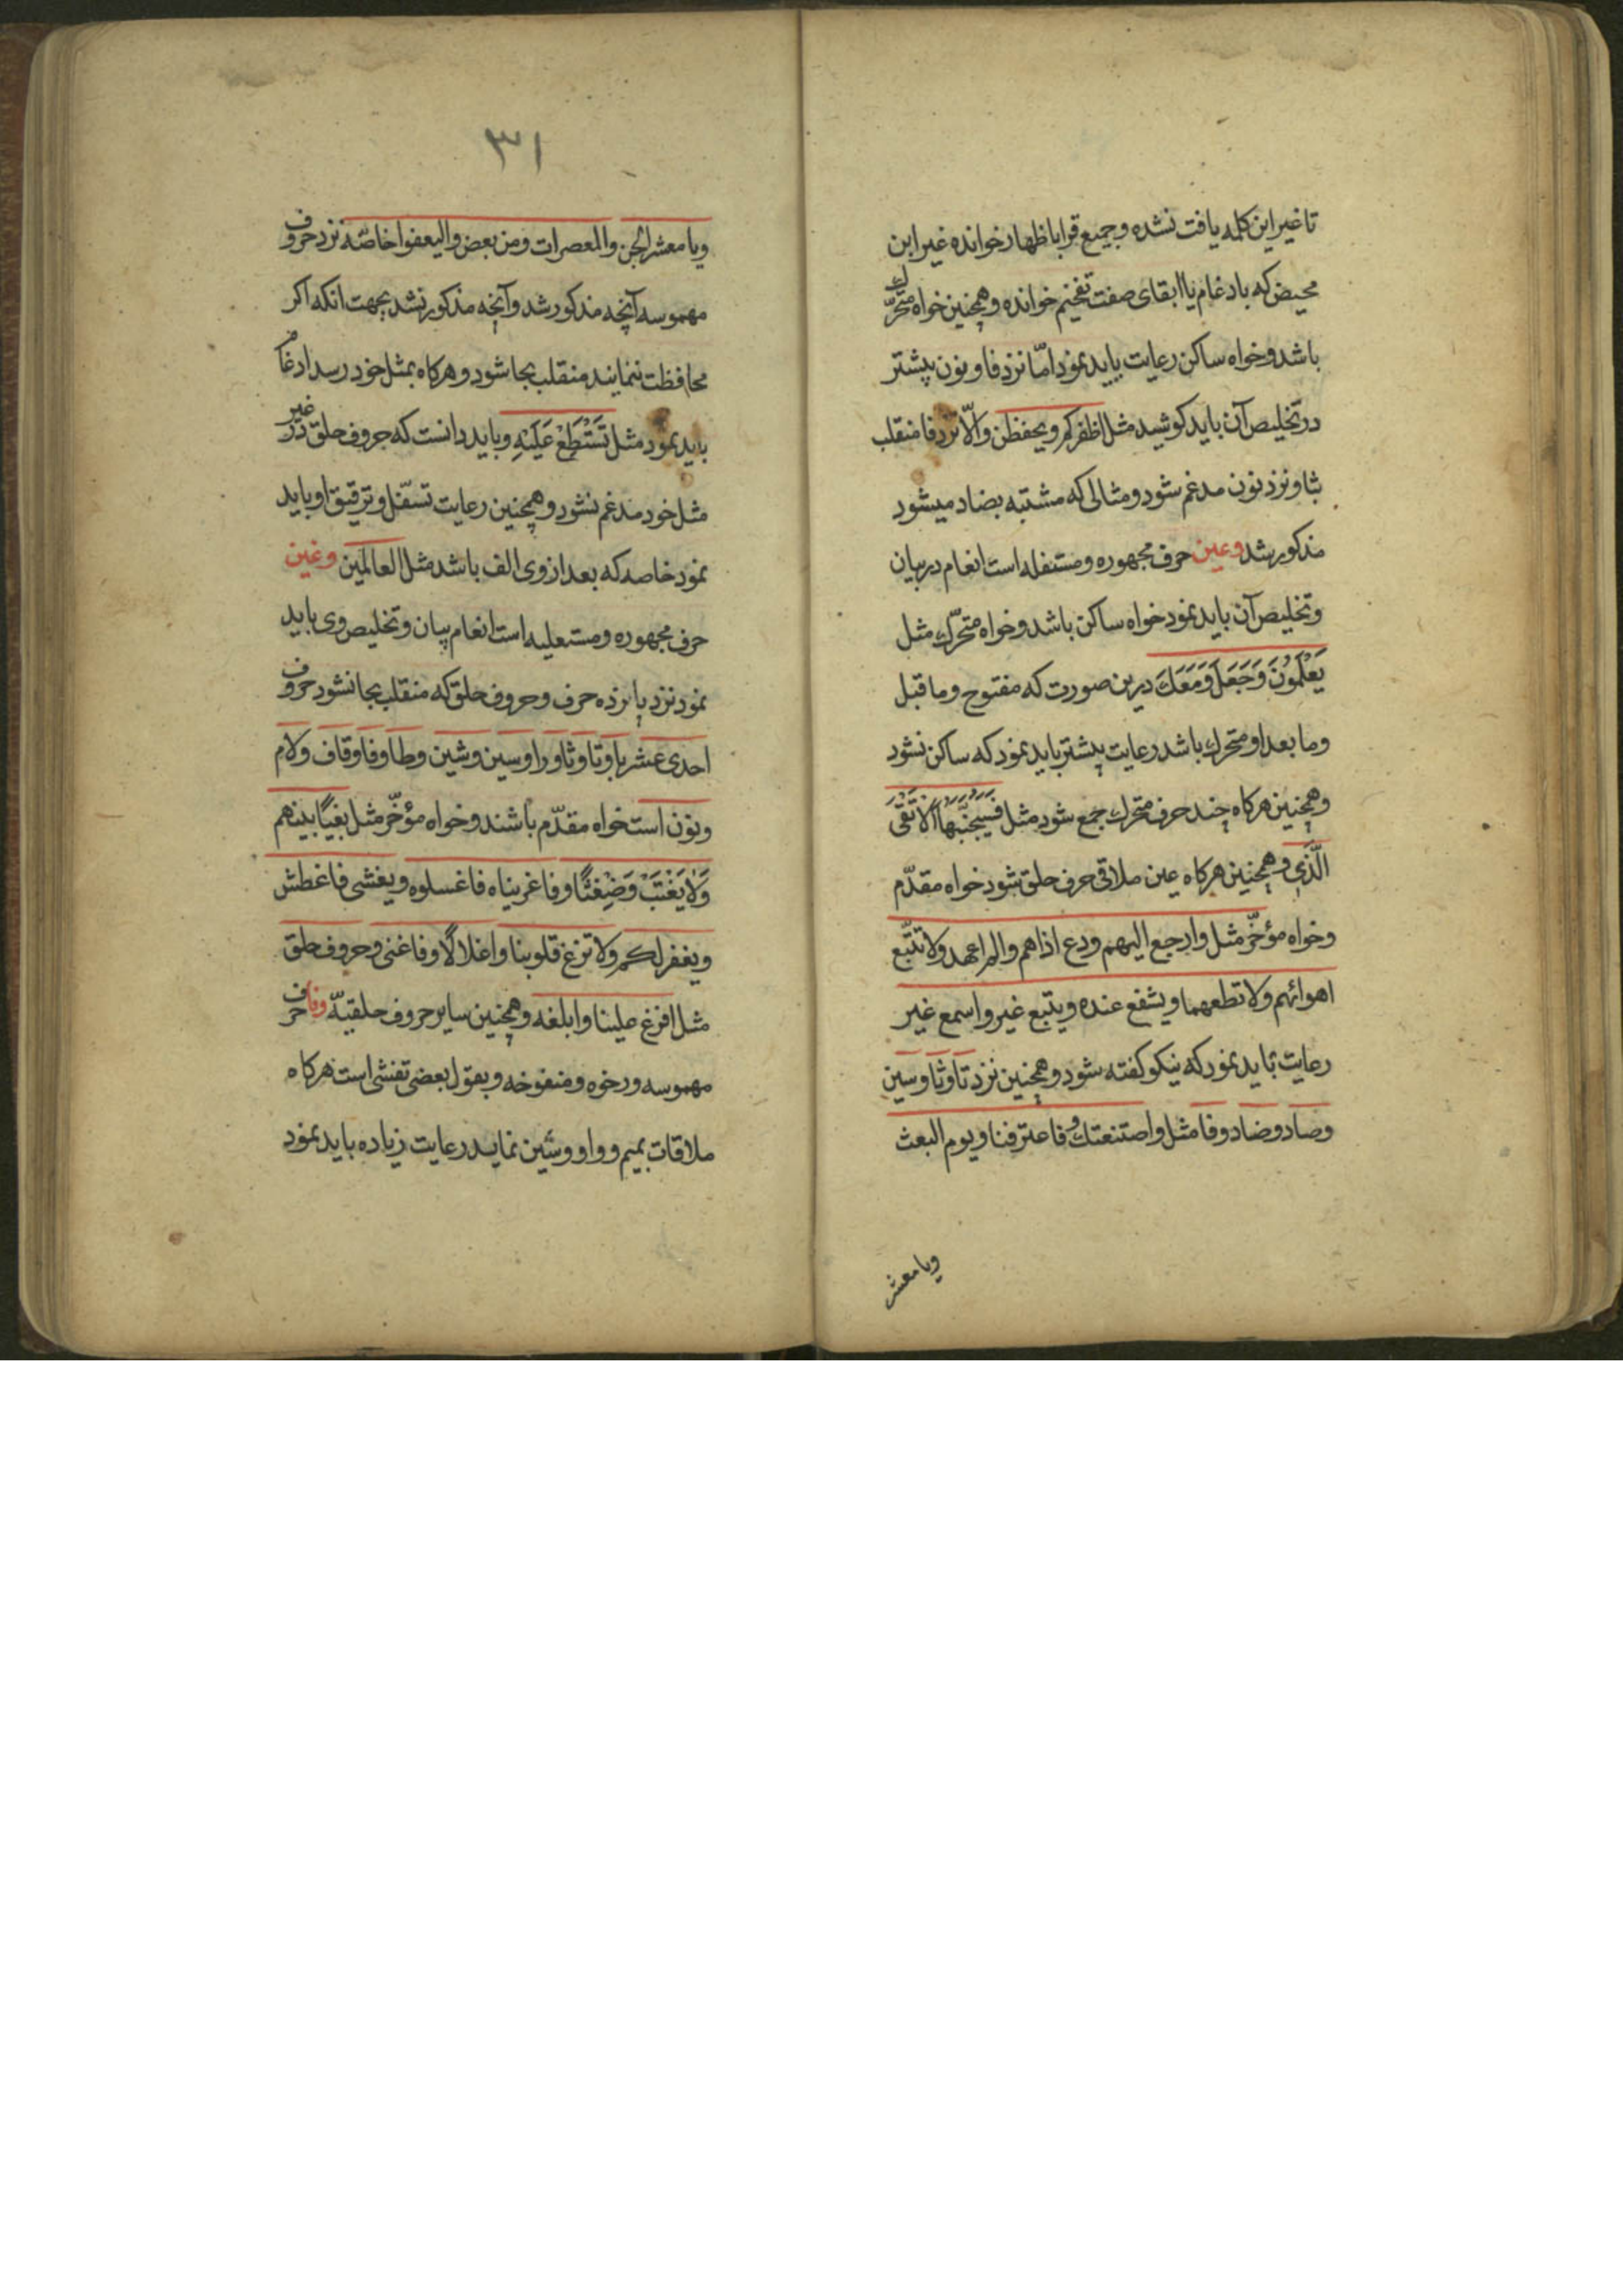 تا غیر این کلمه یافت نشده و جمیع قرا باظهار خوانده غیر ابن
محیض که بادغام یا ابقای صفت تفخیم خوانده و همچنین خواه متحرّک
باشد و خواه ساکن رعایت باید نمود امّا نزد فا و نون پیشتر
در تخلیص آن باید کوشید مثل اظفرکم و یحفظن و الّا نزد فا منقلب
بثا و نزد نون مدغم شود و مثالی که مشتبه بضاد میشود
مذکور شد وعین حرف مجهوره و مستفله است انعام در بیان
و تخلیص آن باید نمود خواه ساکن باشد و خواه متحرّک مثل
یَعْلَمُونَ وَجَعَلَ وَمَعَكَ درین صورت که مفتوح و ما قبل
و ما بعد او متحرک باشد رعایت پیشتر باید نمود که ساکن نشود
و همچنین هرکاه چند حرف متحرک جمع شود مثل فَسَیُجَنَّبُهَا الْاَتْقَی
الَّذِی و همچنین هرکاه عین ملاقی حرف حلق شود خواه مقدّم
و خواه مؤخّر مثل وارجع الیهم ودع اذاهم والم اعهد ولا تتّبع
اهوائهم ولا تطعهما ویشفع عنده ویتبع غیر واسمع غیر
رعایت باید نمود که نیکو کفته شود و همچنین نزد تا و ثا و سین
و صاد و ضاد و فا مثل واصتنعتك و فاعترفنا ویوم البعث
ویا معشر
٣١
ویا معشر الجن والمعصرات ومن بعض والیعفوا خاصّه نزد حروف
مهموسه آنچه مذکور شد و آنچه مذکور نشد بجهت انکه اکر
محافظت ننمایند منقلب بحا شود و هرکاه بمثل خود رسد ادغام
باید نمود مثل تَسْتَطِعْ عَلَیْهِ و باید دانست که حروف حلق در غیر
مثل خود مدغم نشود و همچنین رعایت تسفّل و ترقیق او باید
نمود خاصه که بعد از وی الف باشد مثل العالمین وغین
حرف مجهوره و مستعلیه است انعام بیان و تخلیص وی باید
نمود نزد پانزده حرف و حروف حلق که منقلب بحا نشود حروف
احدی عشر با و تا و ثا و را و سین و شین و طا و فا و قاف و لام
و نون است خواه مقدّم باشند و خواه مؤخّر مثل بغیًا بینهم
وَلَا یَغْتَبْ وَضِغْثًا و فاغریناه فاغسلوه ویغشی فاغطش
ویغفر لکم ولا تزغ قلوبنا واغلالًا وفاغنی و حروف حلق
مثل افرغ علینا وابلغه و همچنین سایر حروف حلقیّه وفا حرف
مهموسه و رخوه و منفوخه و بقول بعضی تفشی است هرکاه
ملاقات بمیم و واو و شین نماید رعایت زیاده باید نمود